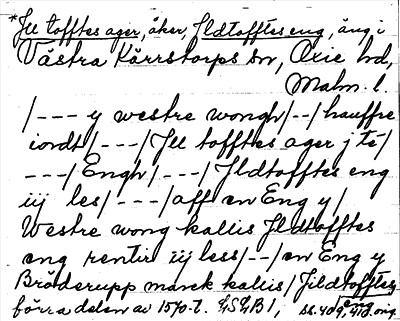 *Ill tofftes ager, åker, Ildtofftes eng, äng i
Västra Kärrstorps sn, Oxie hd,
Malm. l.
/--- y westre wongh/--/hauffre
iordt/---/Ill tofftes ager j tē/
---/Engh/---/Ildtofftes eng
iij les/---/aff en Eng y/
Westre wong kallis Ildtofftes
eng rentir iij less/--/en Eng y
Bröderupp marck kallis/Jildtofftes
eng
förra delen av 1570-t. LSLB 1, ss. 409, 410. orig.